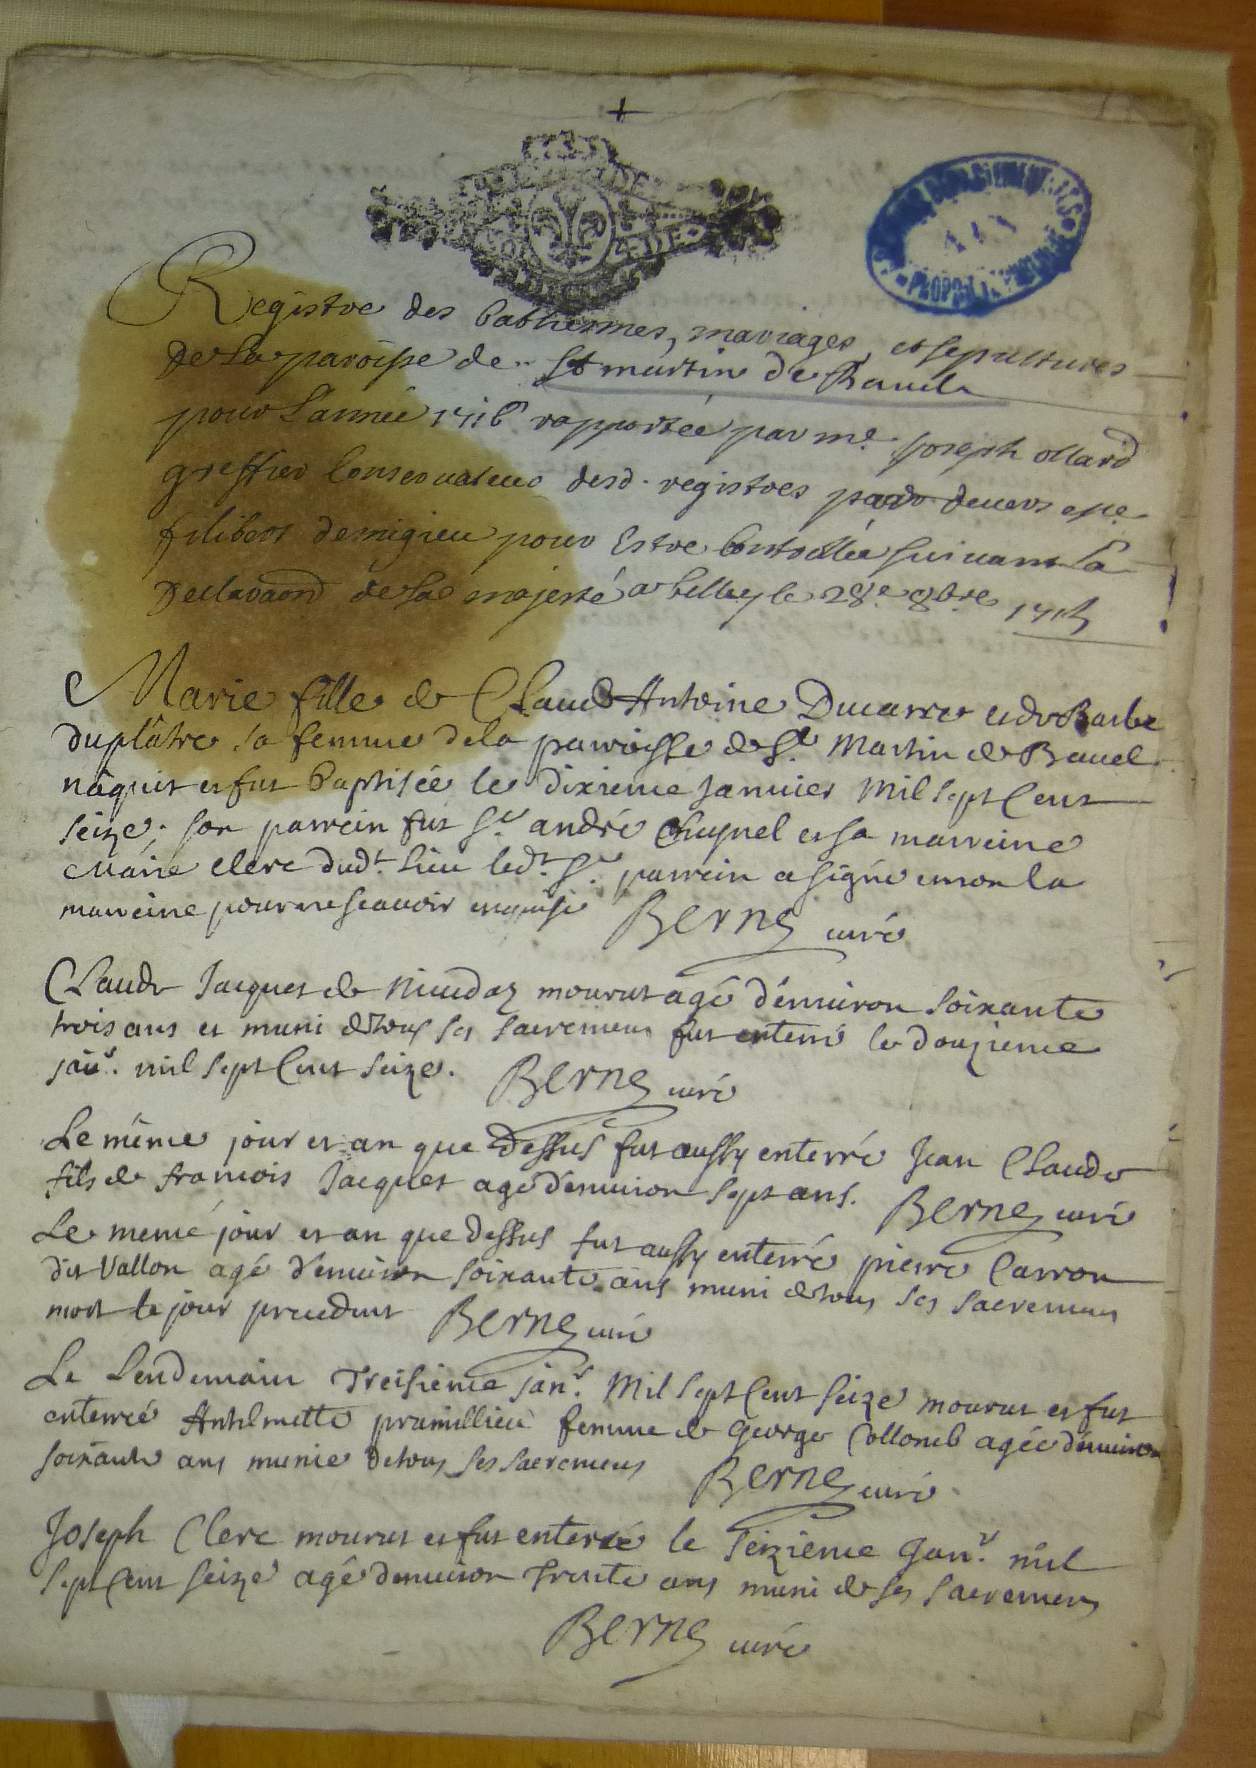 Registre des baptesmes, mariages, et sepultures
de la paroisse de St martin de Bavel
pour l'année 1716 rapportée par me. Joseph ollard
greffier Conservateur desd. registres par devers
filibert demigieu pour Estre Controllée suivant la
Declaraon de sa majesté a belley le 28e. 8bre 1715
Marie fille de Claude Antoine Ducarre et de Barbe
duplâtre sa femme de la parroisse de St. Martin de Bavel
nâquit et fut baptisée le dixieme Janvier Mil sept Cent
seize. son parrein fut Sr. andré et sa marreine
Marie clerc dudt. lieu ledt. Sr. parrein a signé et non la
marreine pour ne scavoir enquise Berne curé
Claude Jacquet de mourut agé d'environ soixante
trois ans et muni de tous ses sacremens fut enterré le douzieme
janr. mil sept Cent seize. Berne curé
Le même jour et an que Dessus fut aussy enterré Jean Claude
fils de francois Jacquet agé d'environ sept ans. Berne curé
Le meme jour et an que dessus fut aussy enterré pierre Carron
dit Vallon agé d'environ soixante ans muni de tous ses sacremens
mort le jour precedent Berne curé
Le Lendemain Treisieme janr. Mil sept Cent seize mourut et fut
enterrée Anthelmette pramillieu femme de George Collomb agée d'environ
soixante ans munie de tous ses sacremens Berne curé
Joseph Clerc mourut et fut enterré le seizieme Janr. mil
sept Cent seize agé d'environ trente ans muni de ses sacremens
Berne curé